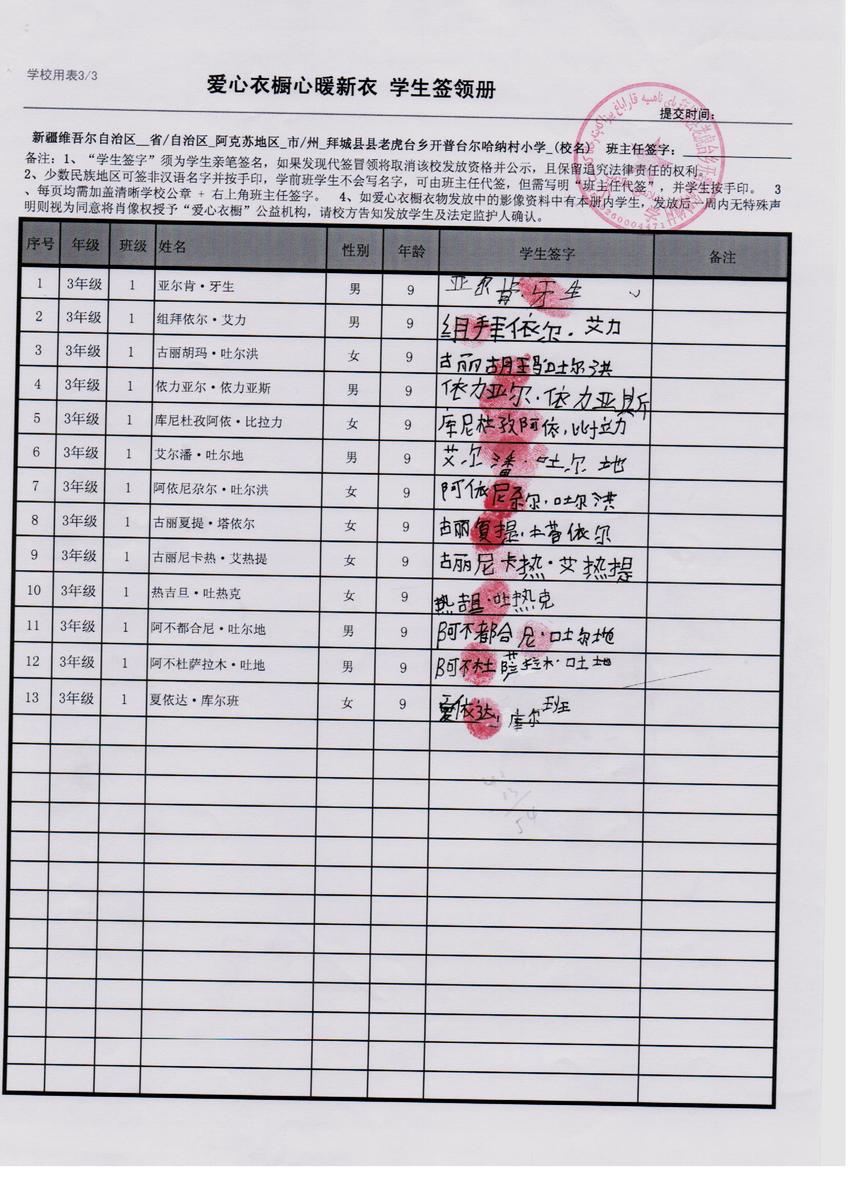 学校用表3/3
爱心衣橱心暖新衣 学生签领册
提交时间:
新疆维吾尔自治区__省/自治区_阿克苏地区_市/州_拜城县县老虎台乡开普台尔哈纳村小学_(校名) 班主任签字:
备注: 1、“学生签字”须为学生亲笔签名, 如果发现代签冒领将取消该校发放资格并公示, 且保留追究法律责任的权利.
2、少数民族地区可签非汉语名字并按手印, 学前班学生不会写名字, 可由班主任代签, 但需写明“班主任代签”, 并学生按手印. 3
、每页均需加盖清晰学校公章 + 右上角班主任签字. 4、如爱心衣橱衣物发放中的影像资料中有本册内学生, 发放后一周内无特殊声
明则视为同意将肖像权授予“爱心衣橱”公益机构, 请校方告知发放学生及法定监护人确认.
序号 年级 班级 姓名 性别 年龄 学生签字 备注
1 3年级 1 亚尔肯·牙生 男 9 亚尔肯·牙生
2 3年级 1 组拜依尔·艾力 男 9 组拜依尔·艾力
3 3年级 1 古丽胡玛·吐尔洪 女 9 古丽胡玛吐尔洪
4 3年级 1 依力亚尔·依力亚斯 男 9 依力亚尔·依力亚斯
5 3年级 1 库尼杜孜阿依·比拉力 女 9 库尼杜孜阿依·比拉力
6 3年级 1 艾尔潘·吐尔地 男 9 艾尔潘·吐尔地
7 3年级 1 阿依尼尕尔·吐尔洪 女 9 阿依尼尕尔·吐尔洪
8 3年级 1 古丽夏提·塔依尔 女 9 古丽夏提·塔依尔
9 3年级 1 古丽尼卡热·艾热提 女 9 古丽尼卡热·艾热提
10 3年级 1 热吉旦·吐热克 女 9 热吉旦·吐热克
11 3年级 1 阿不都合尼·吐尔地 男 9 阿不都合尼·吐尔地
12 3年级 1 阿不杜萨拉木·吐地 男 9 阿不杜萨拉木·吐地
13 3年级 1 夏依达·库尔班 女 9 夏依达·库尔班
13/54